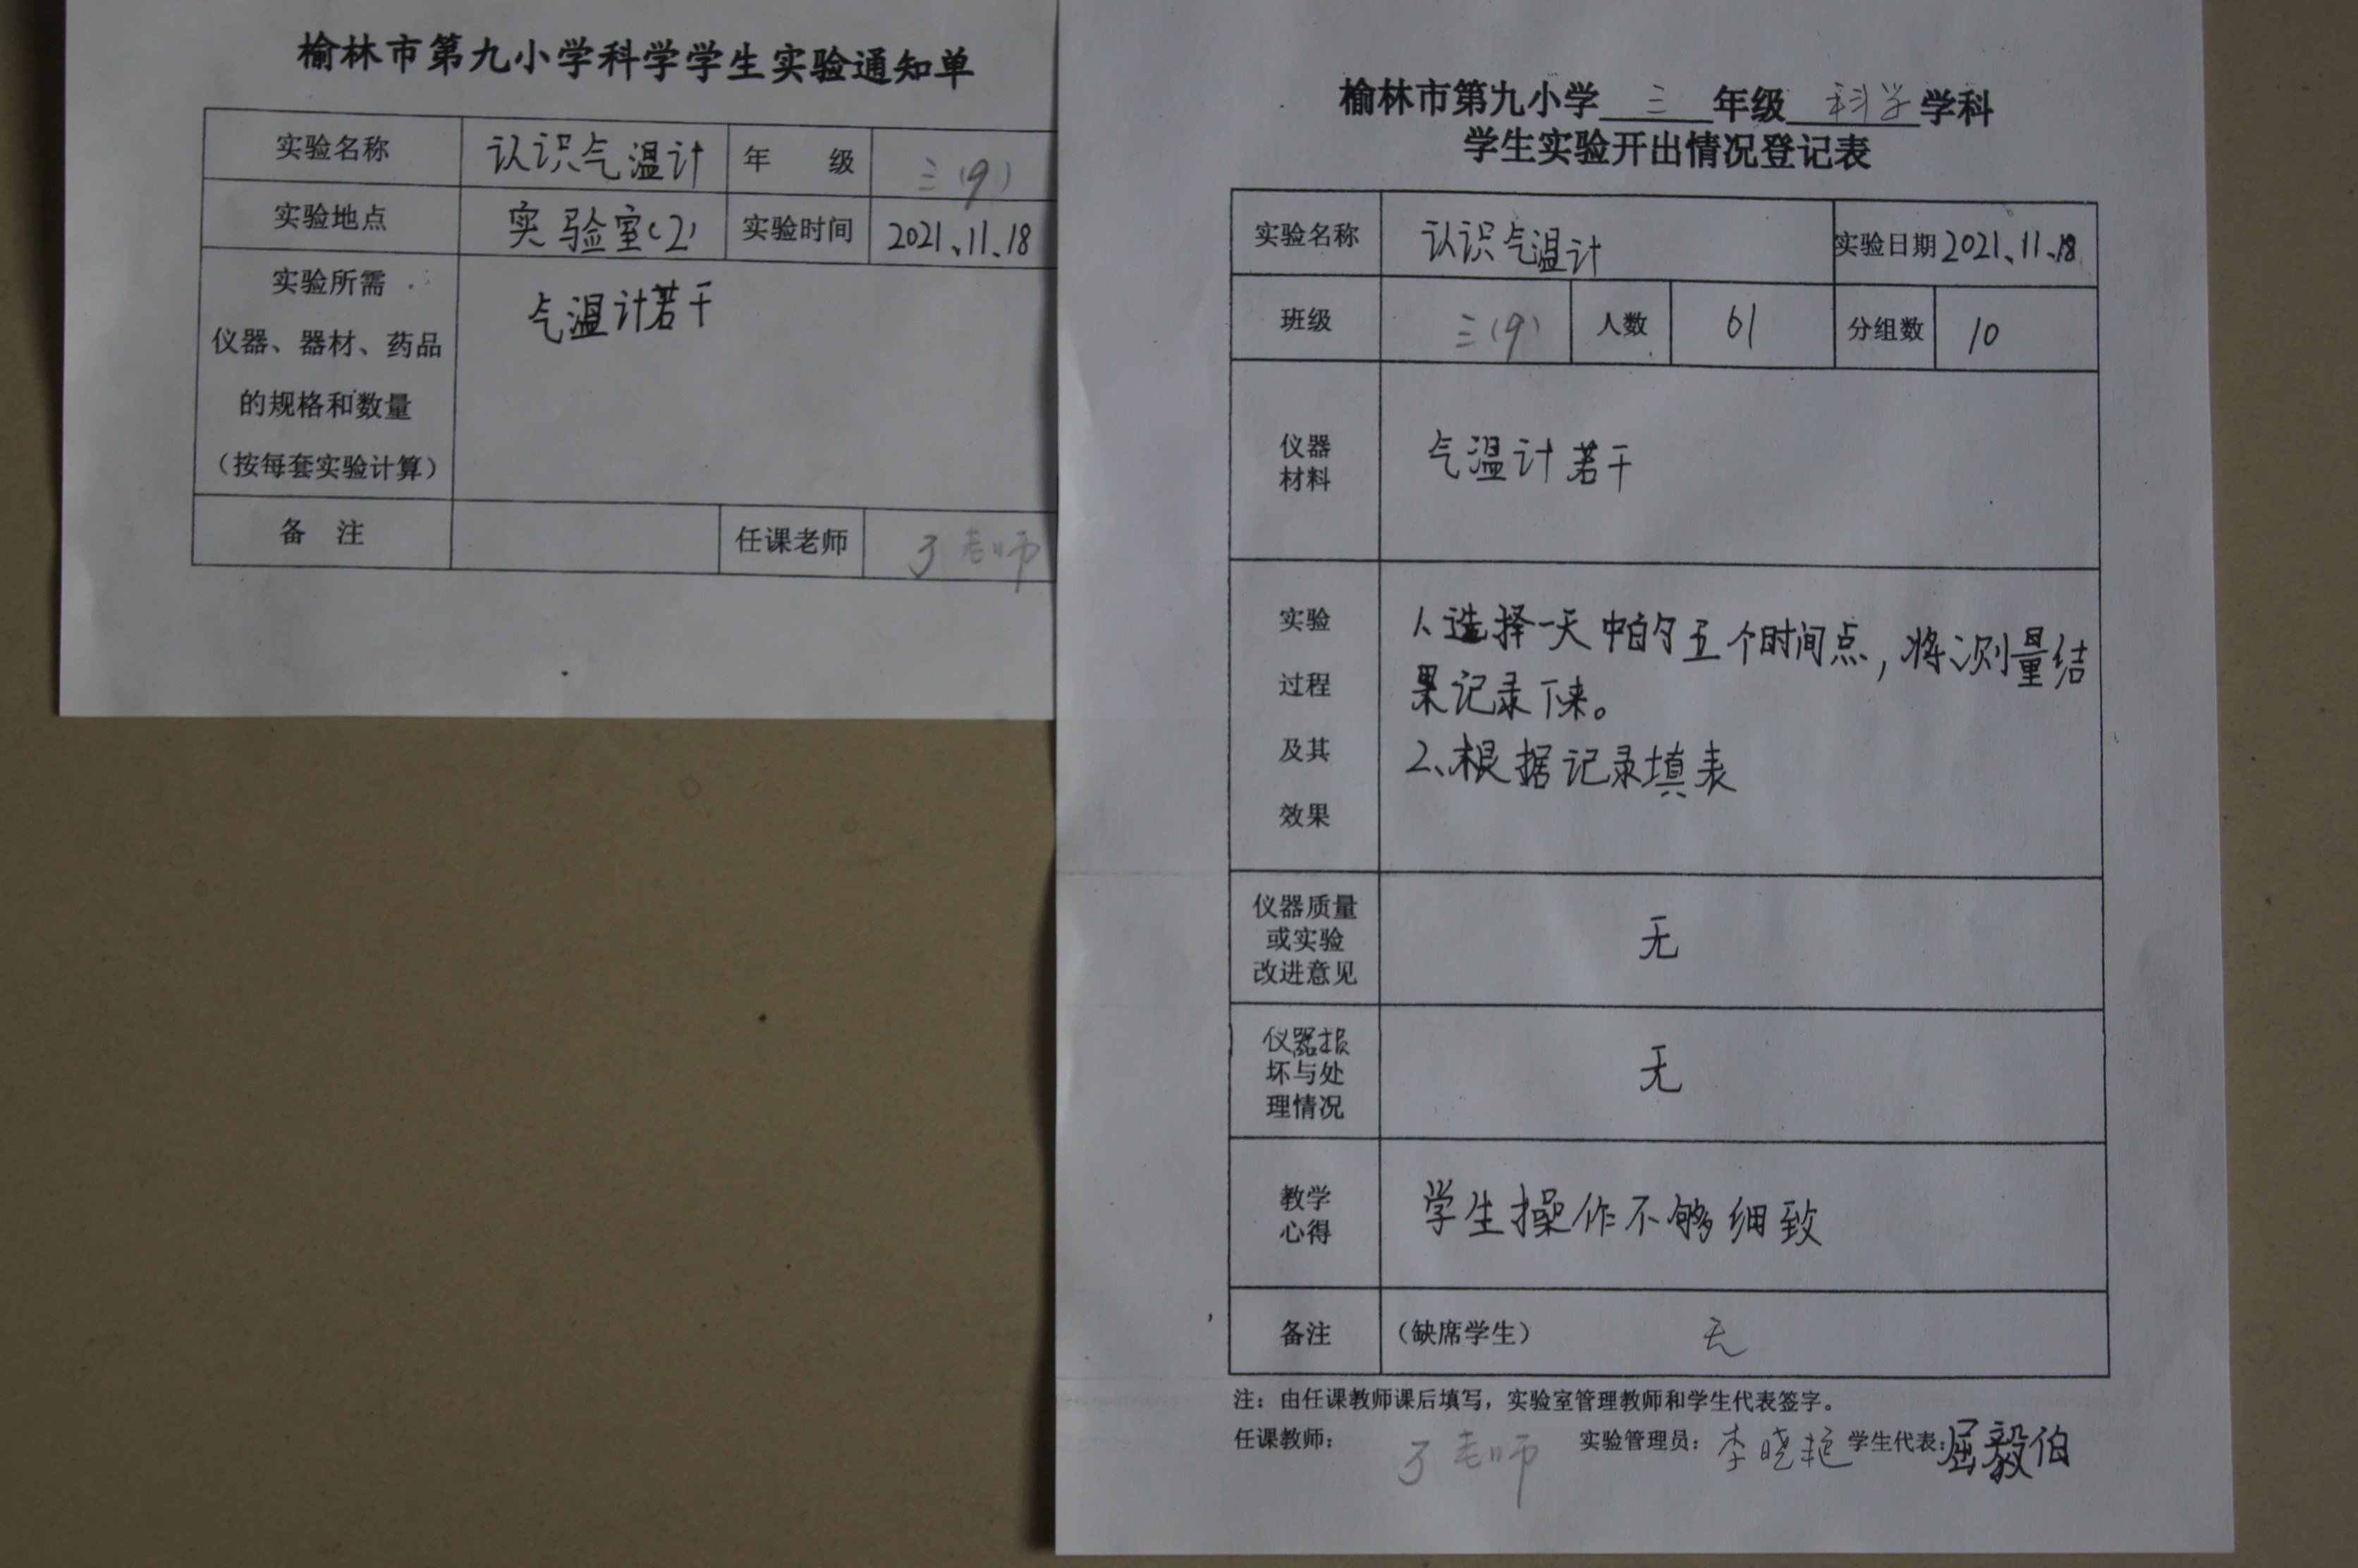 榆林市第九小学科学学生实验通知单
实验名称 认识气温计 年 级 三(9)
实验地点 实验室(2) 实验时间 2021、11、18
实验所需
仪器、器材、药品
的规格和数量
(按每套实验计算)
气温计若干
备 注 任课老师 丁老师
榆林市第九小学 三 年级 科学 学科
学生实验开出情况登记表
实验名称 认识气温计 实验日期 2021、11、18
班级 三(9) 人数 61 分组数 10
仪器
材料
气温计若干
实验
过程
及其
效果
1、选择一天中的五个时间点,将测量结
果记录下来。
2、根据记录填表
仪器质量
或实验
改进意见
无
仪器损
坏与处
理情况
无
教学
心得
学生操作不够细致
备注 (缺席学生) 无
注:由任课教师课后填写,实验室管理教师和学生代表签字。
任课教师: 丁老师 实验管理员:李晓艳 学生代表:屈毅伯